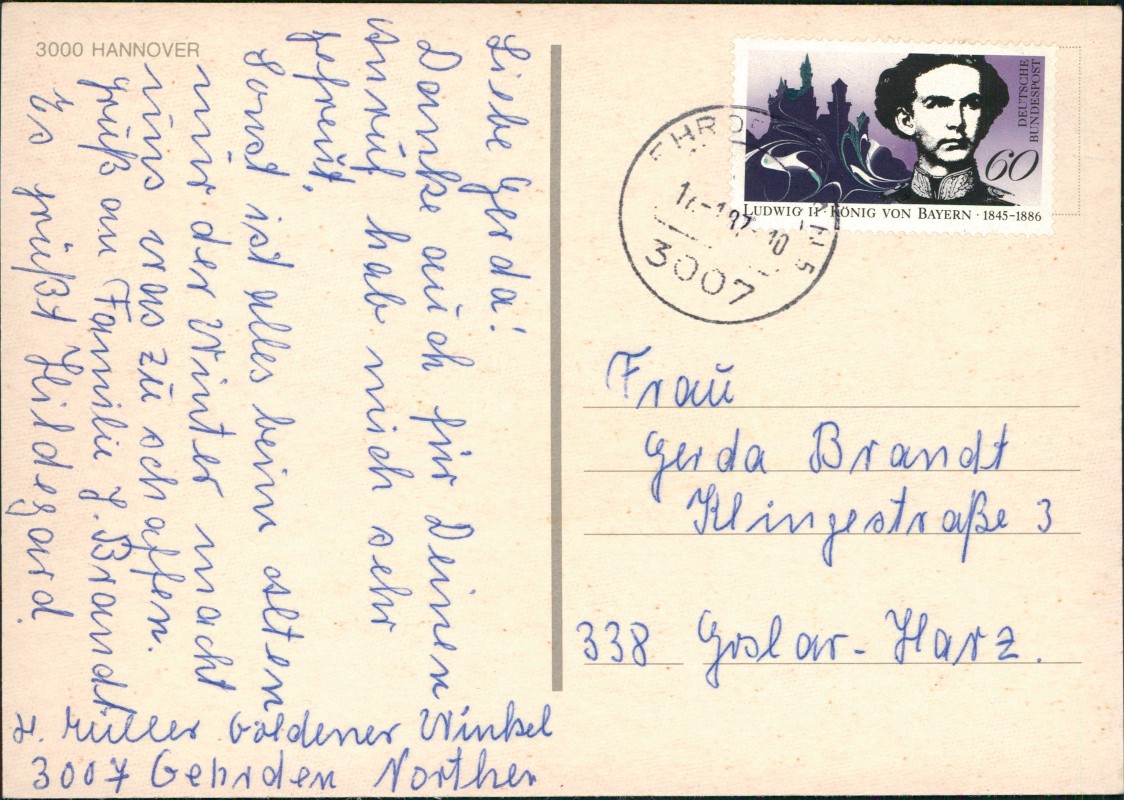 3000 HANNOVER
Liebe Gerda!
Danke auch für Deinen
Anruf, hab mich sehr
gefreut,
Sonst ist alles beim alten
nur der Winter macht
uns was zu schaffen.
Gruß an Familie J. Brandt
Es grüßt Hildegard.
H. Müller Goldener Winkel
3007 Gehrden
DEUTSCHE
BUNDESPOST
60
LUDWIG II · KÖNIG VON BAYERN · 1845-1886
3007
Frau
Gerda Brandt
Klingestraße 3
338 Goslar-Harz.